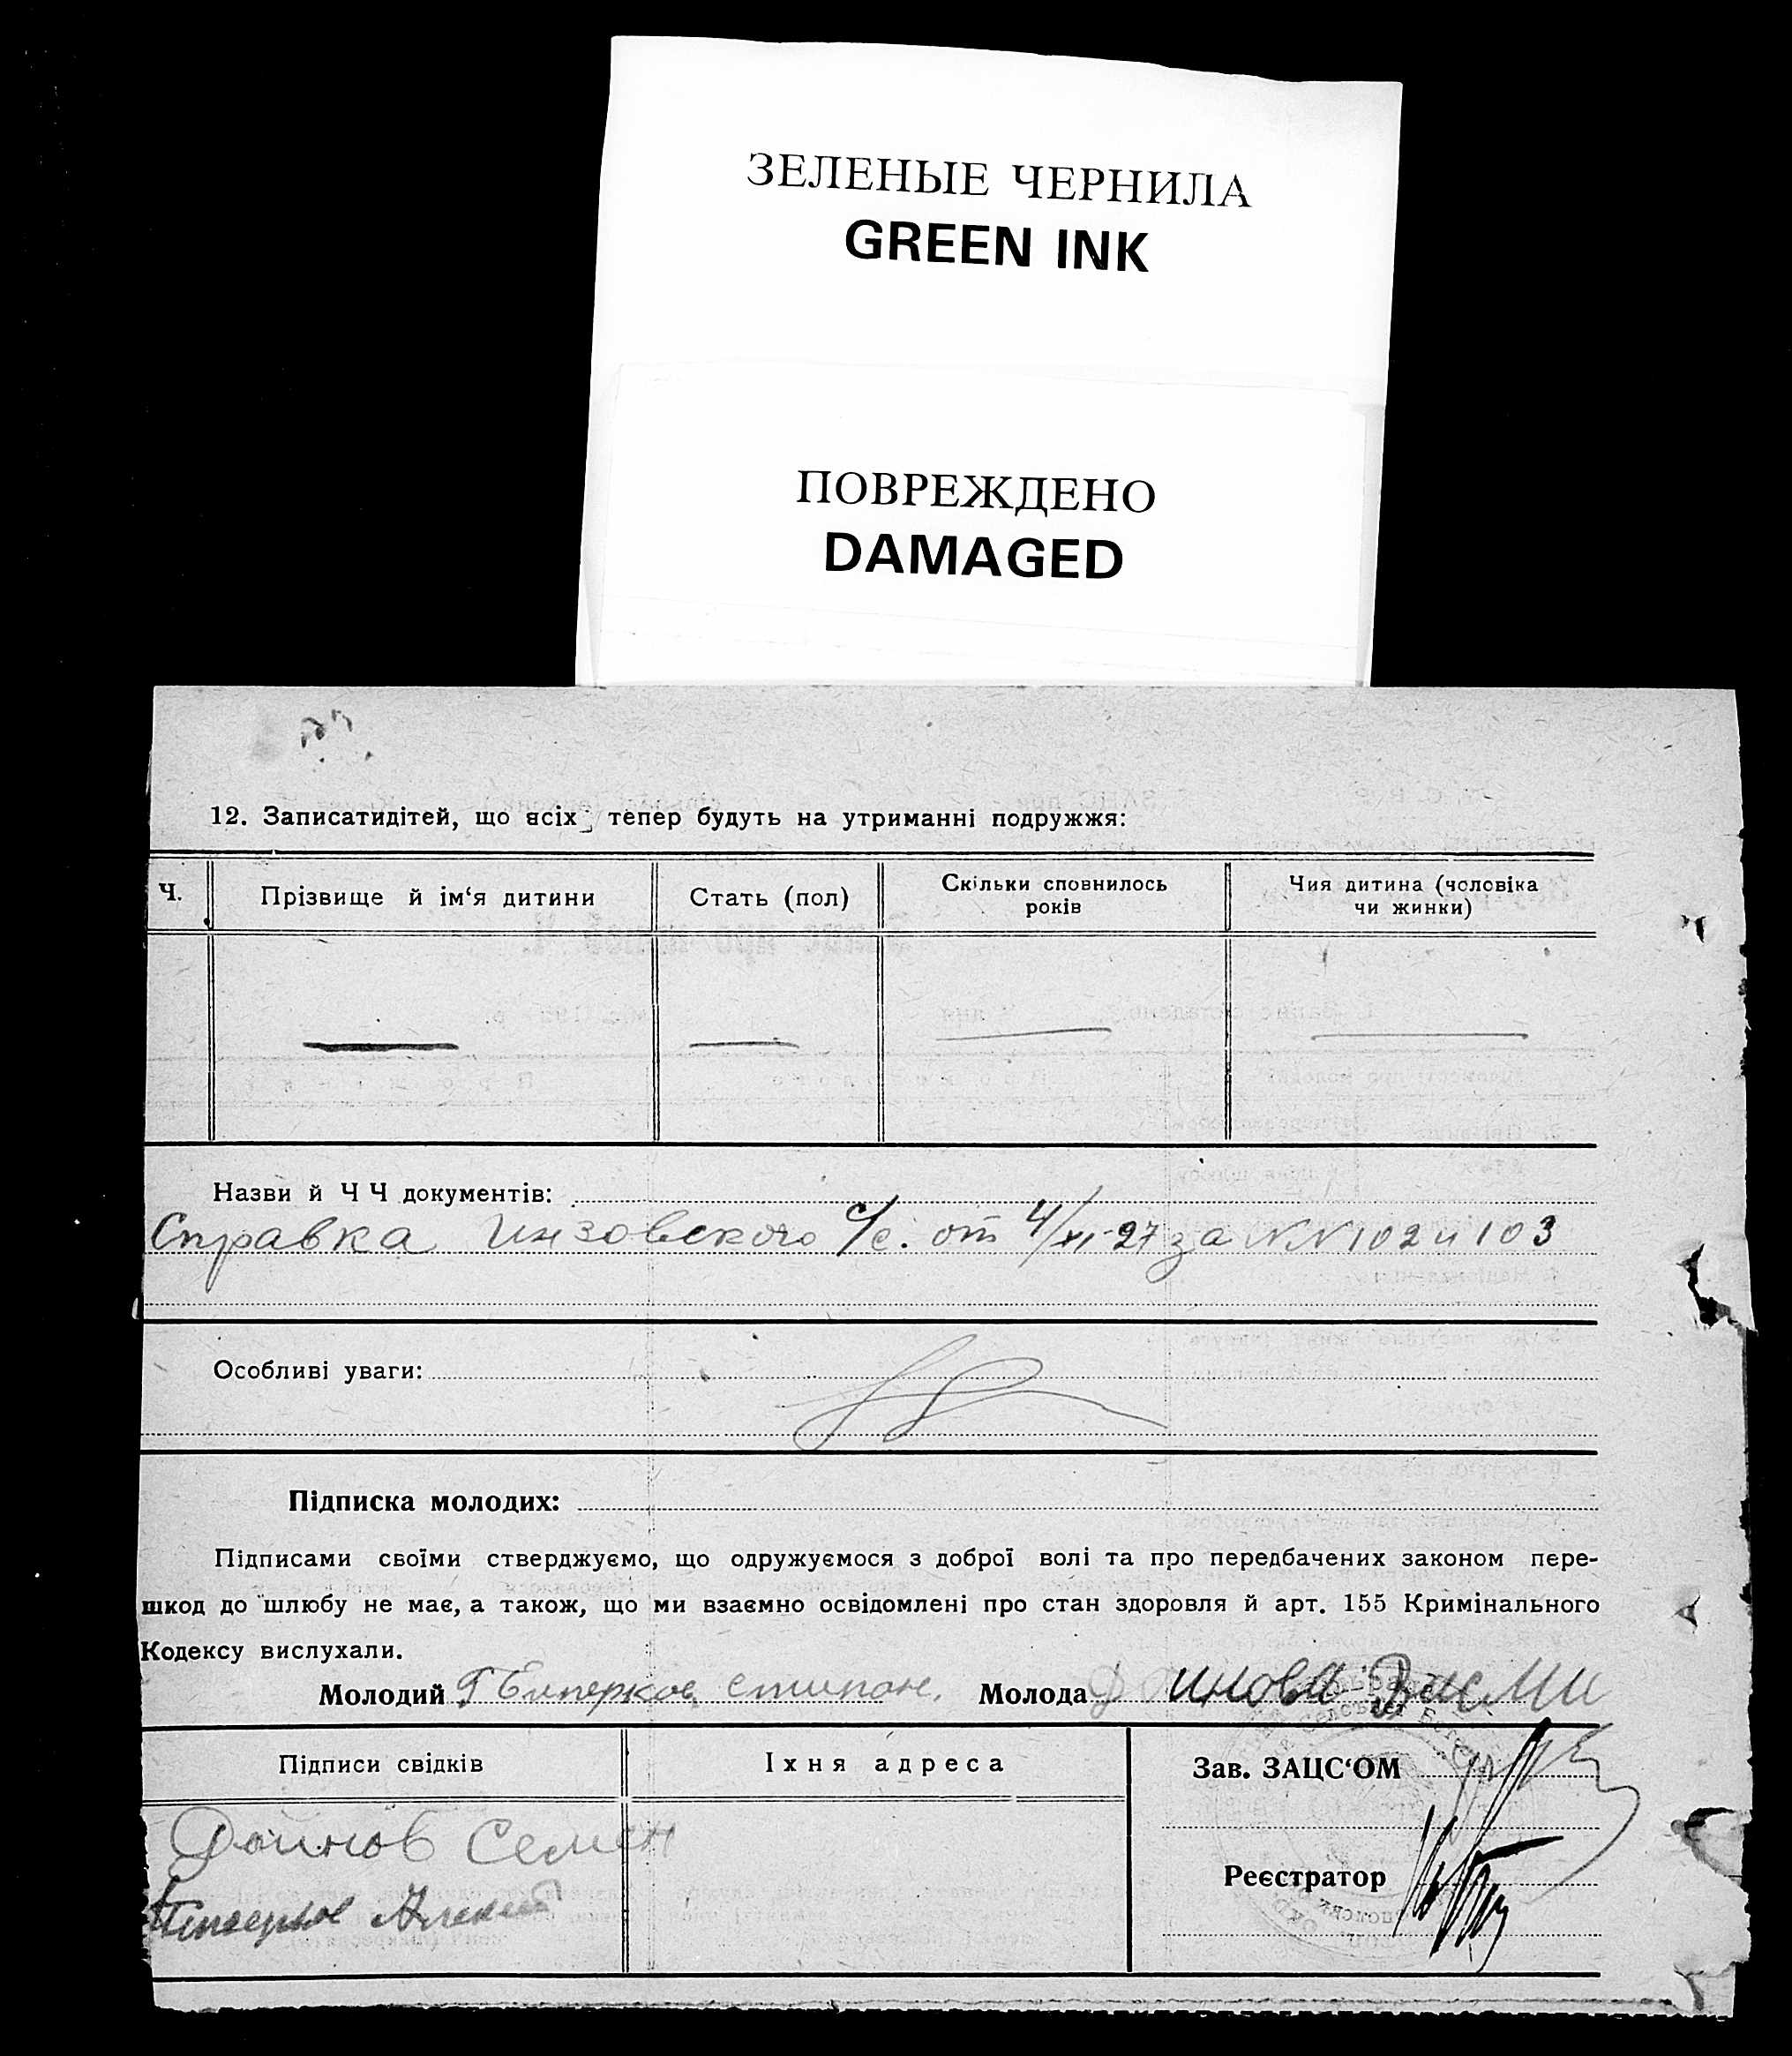 ЗЕЛЕНЫЕ ЧЕРНИЛА
GREEN INK
ПОВРЕЖДЕНО
DAMAGED
12. Записатидітей, що всіх тепер будуть на утриманні подружжя:
Ч.
Прізвище й ім‘я дитини
Стать (пол)
Скільки сповнилось
років
Чия дитина (чоловіка
чи жинки)
Назви й Ч Ч документів:
Справка Инзовского с/с. от 4/XI-27 за NN 102 и 103
Особливі уваги:
Підписка молодих:
Підписами своїми стверджуємо, що одружуємося з доброї волі та про передбачених законом пере-
шкод до шлюбу не має, а також, що ми взаємно освідомлені про стан здоровля й арт. 155 Кримінального
Кодексу вислухали.
Молодий
Молода
Підписи свідків
Їхня адреса
Зав. ЗАЦС‘ОМ
Дойнов Семен
Реєстратор